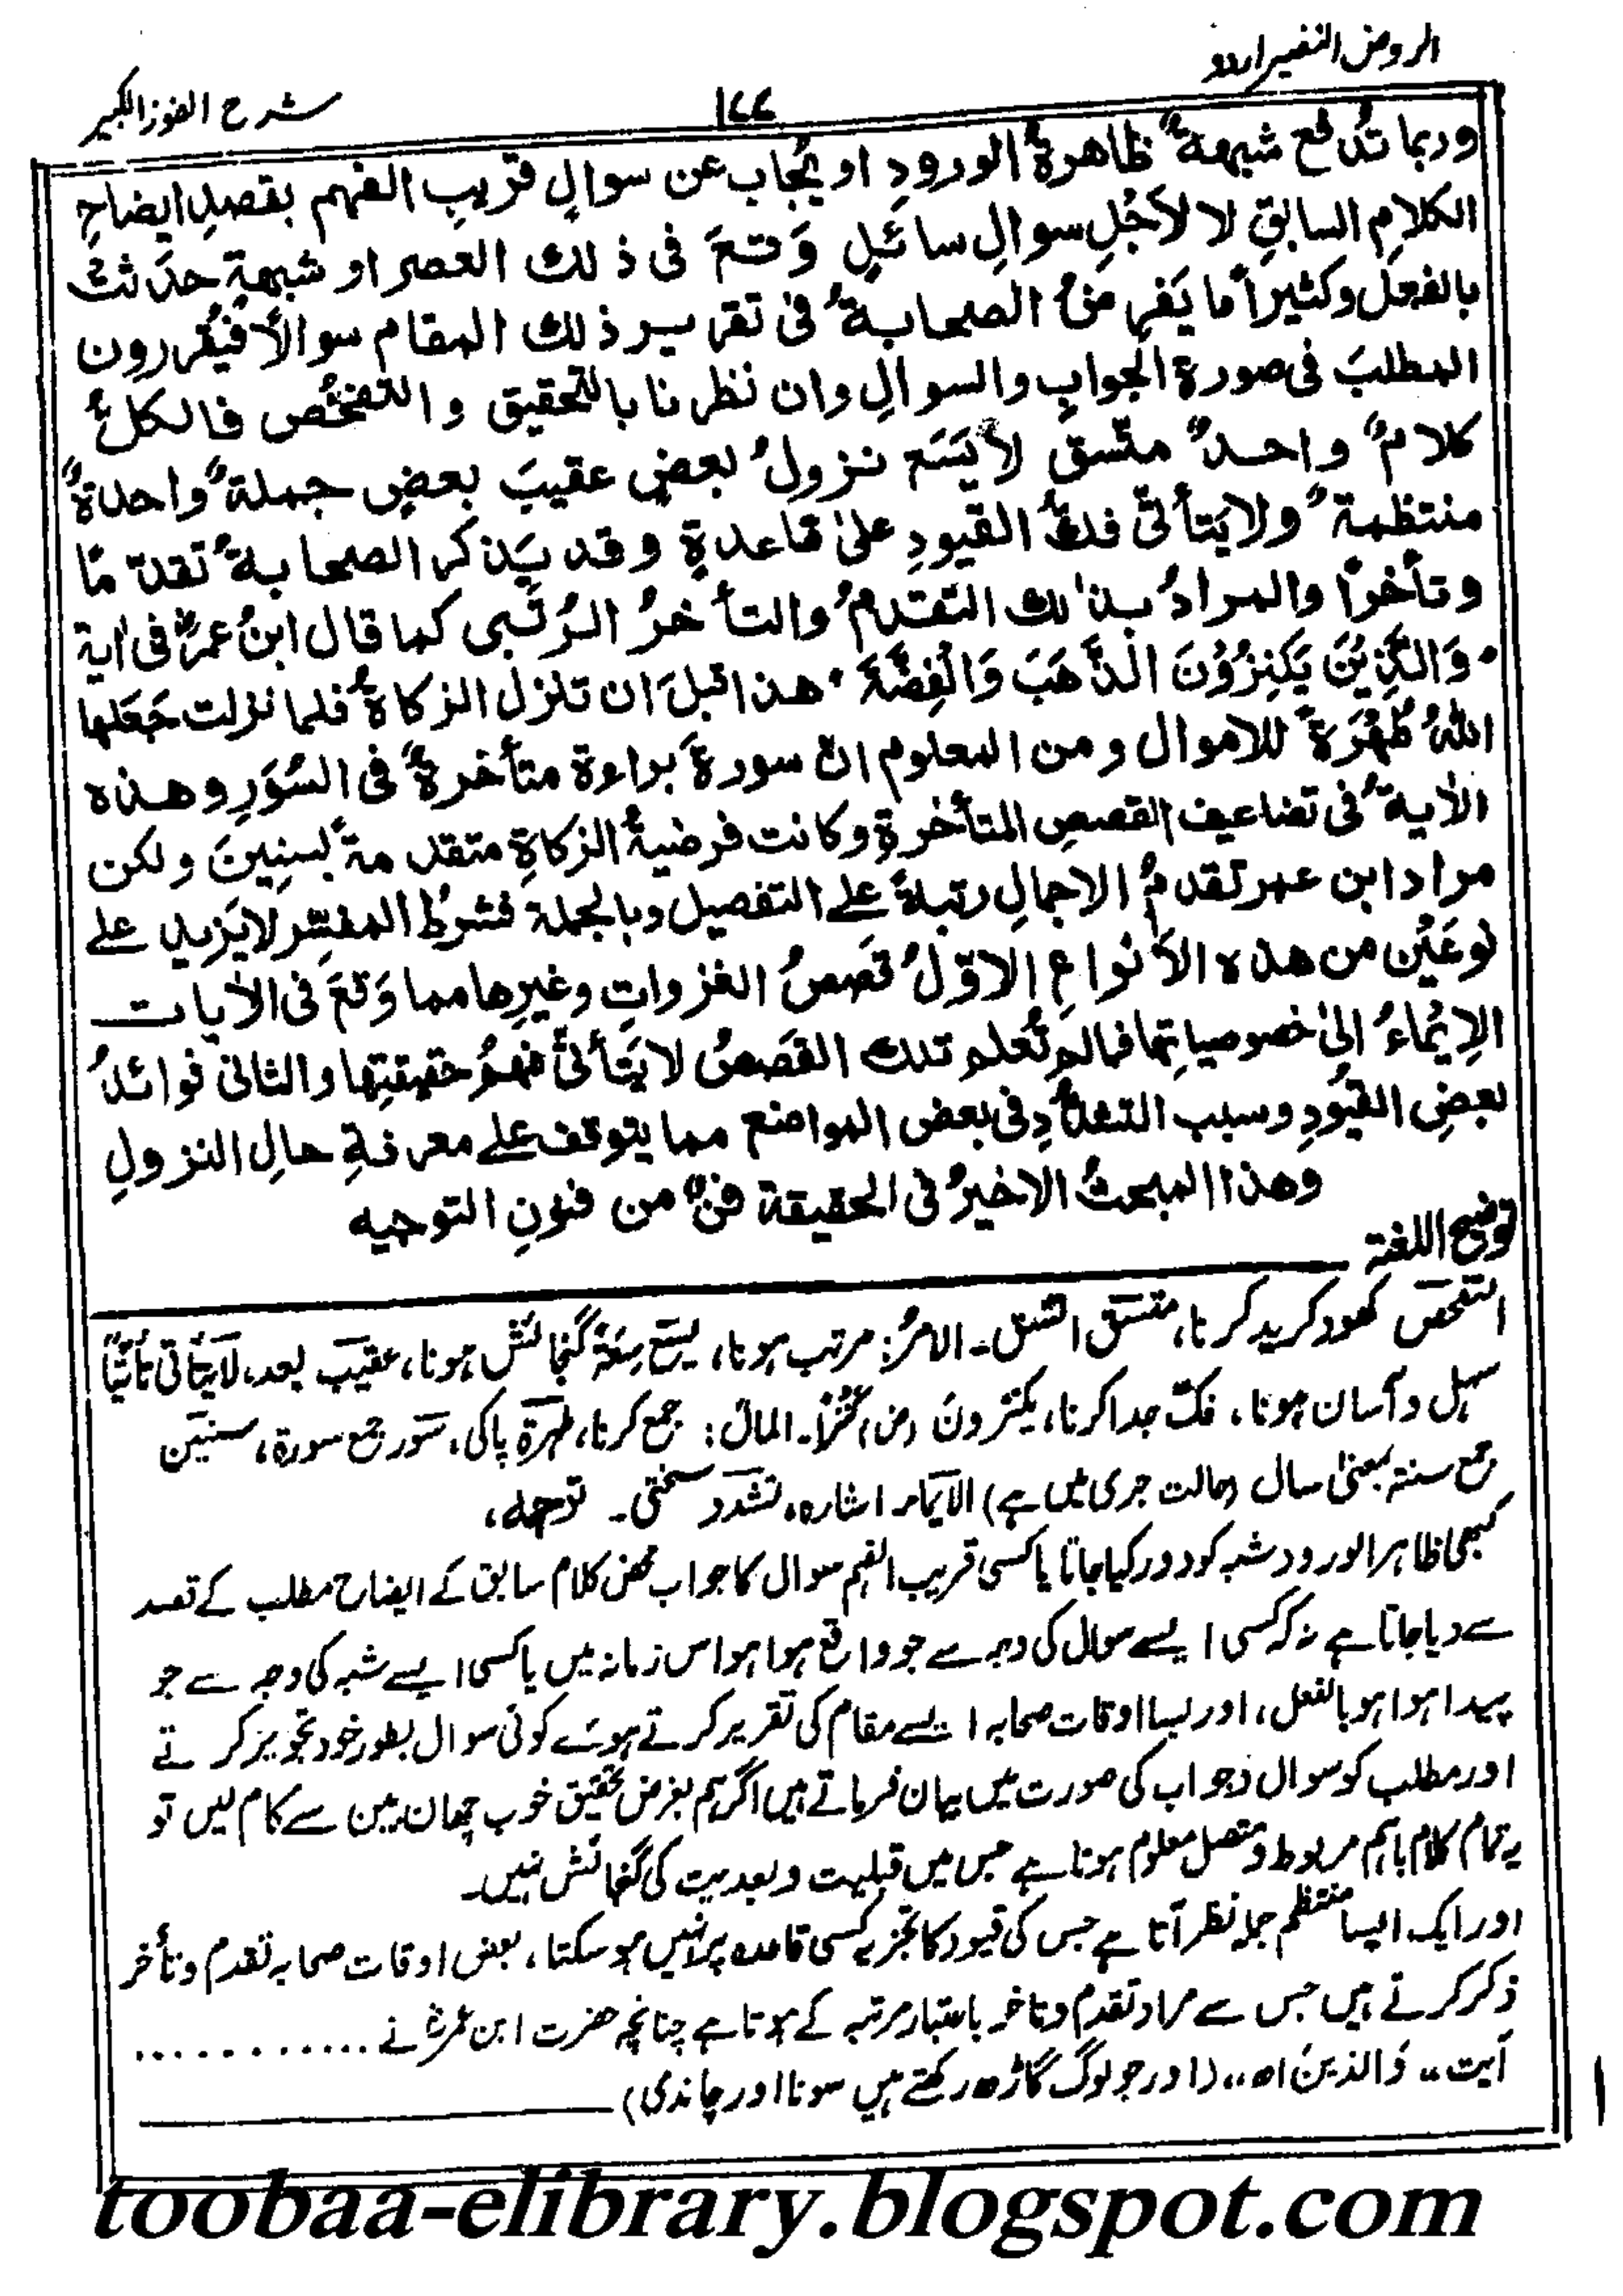 الروض النضیر اردو
۱۷۷
شرح الفوز الکبیر
وربما تُدفع شبهةٌ ظاهرةُ الورودِ او یُجاب عن سوالٍ قریبِ الفهم بقصدِ ایضاحِ
الکلامِ السابقِ لا لاَجْلِ سوالِ سائلٍ وَقَعَ فی ذلك العصر او شبهةٍ حدَثتْ
بالفعل وکثیراً ما یَفرِضُ الصحابةُ فی تقریر ذلك المقام سوالاً فیُقررون
المطلبَ فی صورة الجوابِ والسوالِ وان نظرنا بالتحقیق والتفحُّص فالکلُّ
کلامٌ واحدٌ متّسق لا یَسَع نزولُ بعضٍ عقیبَ بعضٍ جملةٌ واحدةٌ
منتظمةٌ ولا یَتأتّٰی فكُّ القیودِ علیٰ قاعدةٍ وقد یَذکر الصحابةُ تقدّمًا
وتأخراً والمرادُ بذٰلك التقدمُ والتأخرُ الرُتَبی کما قال ابنُ عمرؓ فی اٰیة
"وَالَّذِیْنَ یَکْنِزُوْنَ الذَّهَبَ وَالْفِضَّةَ" هذا قبلَ ان تنزل الزکاةُ فلما نزلت جَعَلها
اللّٰهُ طُهْرَةً للاموال ومن المعلوم انّ سورةَ براءة متأخرةٌ فی السُوَرِ وهذه
الاٰیةُ فی تضاعیف القصصِ المتأخرةِ وکانت فرضیةُ الزکاةِ متقدمةً بسنِینَ ولکن
مراد ابن عمر تقدمُ الاجمالِ رتبةً علی التفصیل وبالجملة فشرطُ المفسّر لا یَزید علی
نوعَیْن من هذه الاَنواعِ الاوّلُ قَصَصُ الغزواتِ وغیرِها مما وَقَعَ فی الاٰیات
الاِیْمَاءُ الیٰ خصوصیاتِها فمالم تُعلم تلك القَصَصُ لا یَتأتّٰی فهمُ حقیقتِها والثانی فوائدُ
بعضِ القیُودِ وسبب التشدُّدِ فی بعض المواضع مما یتوقف علی معرفةِ حالِ النزولِ
وهذا المبحثُ الاخیرُ فی الحقیقة فنٌّ من فنونِ التوجیه
توضیح اللغة
التفحّص کھود کرید کرنا، متسق اتسق۔ الامرُ: مرتب ہونا، یسَع سِعَةً گنجائش ہونا، عقیبَ بعد، لا یَتأتّٰی تأتّیاً
سہل و آسان ہونا، فكّ جدا کرنا، یکنزونَ (ض) کَنْزاً۔ المالَ: جمع کرنا، طہرۃ پاکی، سُوَر جمع سورة، سنین
جمع سنة بمعنیٰ سال (حالت جری میں ہے) الایماء اشارہ، تشدّد سختی۔ ترجمہ،
کبھی ظاہر الورود شبہ کو دور کیا جاتا یا کسی قریب الفہم سوال کا جواب محض کلام سابق کے ایضاح مطلب کے قصد
سے دیا جاتا ہے نہ کہ کسی ایسے سوال کی وجہ سے جو واقع ہوا ہو اس زمانہ میں یا کسی ایسے شبہ کی وجہ سے جو
پیدا ہوا ہو بالفعل، اور بسا اوقات صحابہ ایسے مقام کی تقریر کرتے ہوئے کوئی سوال بطور خود تجویز کرتے
اور مطلب کو سوال وجواب کی صورت میں بیان فرماتے ہیں اگر ہم بغرض تحقیق خوب چھان بین سے کام لیں تو
یہ تمام کلام باہم مربوط ومتصل معلوم ہوتا ہے جس میں قبلیت وبعدیت کی گنجائش نہیں۔
اور ایک ایسا منتظم جملہ نظر آتا ہے جس کی قیود کا تجزیہ کسی قاعدہ پر نہیں ہوسکتا، بعض اوقات صحابہ تقدم وتأخر
ذکر کرتے ہیں جس سے مراد تقدم وتاخر باعتبار مرتبہ کے ہوتا ہے چنانچہ حضرت ابن عمرؓ نے ............
آیت ،، وَالذین اھ ،، (اور جو لوگ گاڑھ رکھتے ہیں سونا اور چاندی)
toobaa-elibrary.blogspot.com